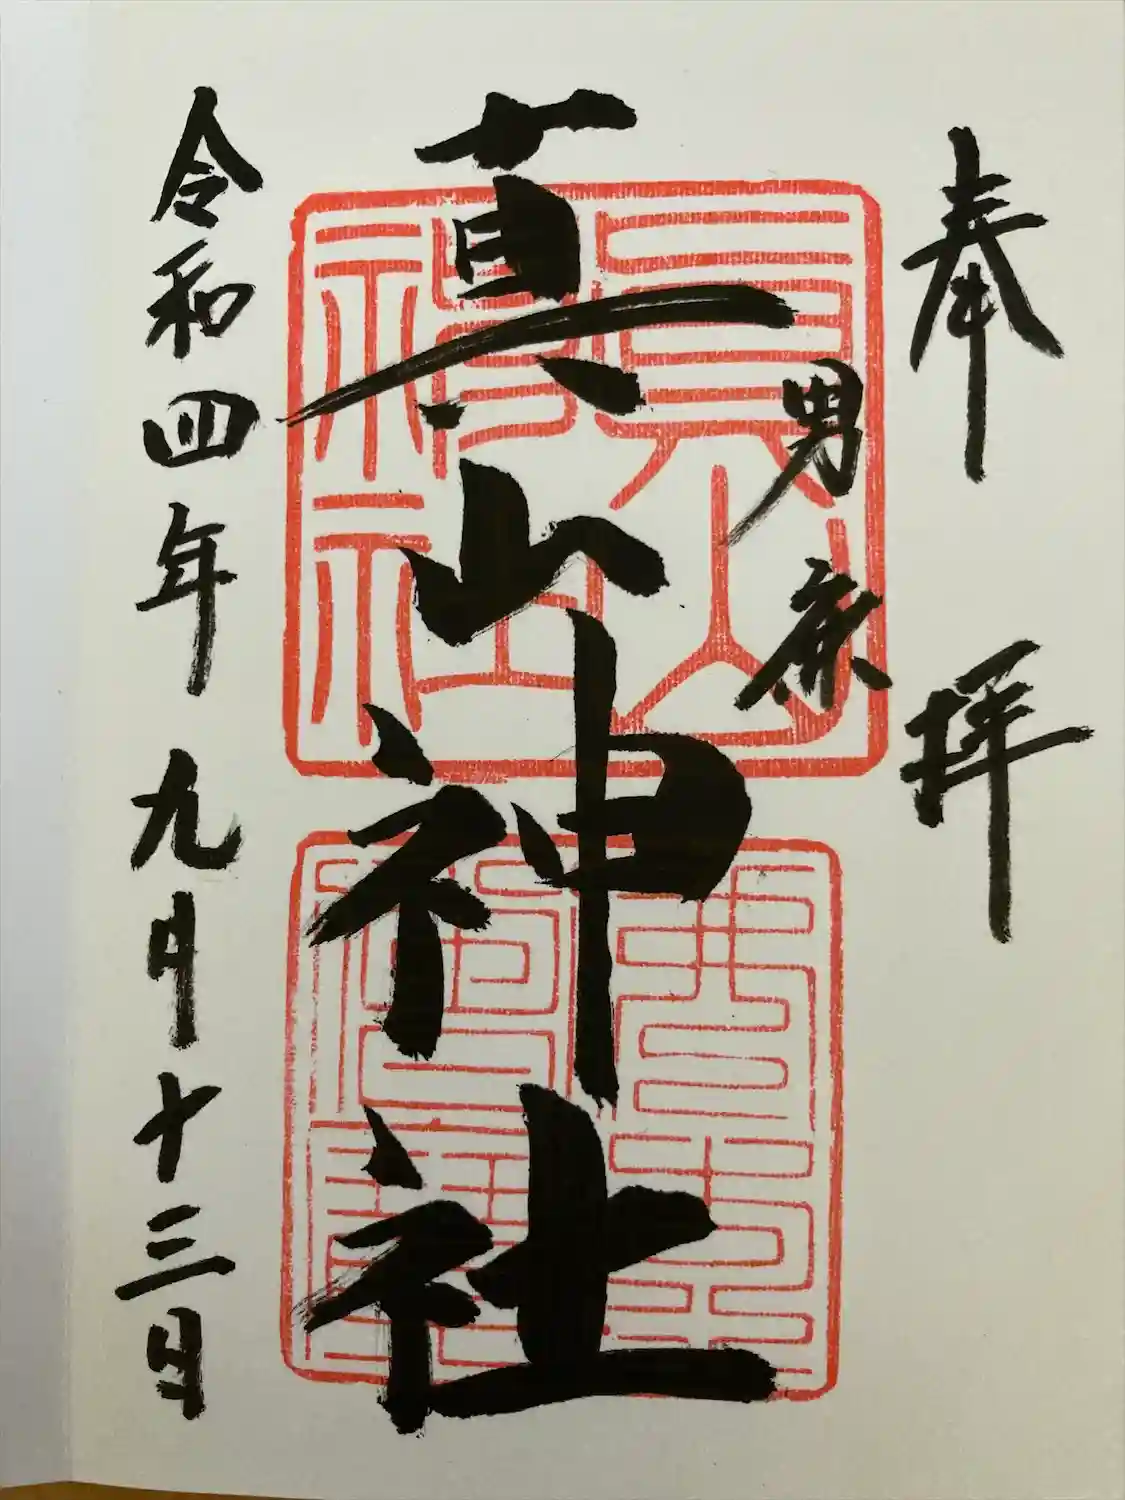 奉拝
男鹿
真山神社
令和四年九月十三日